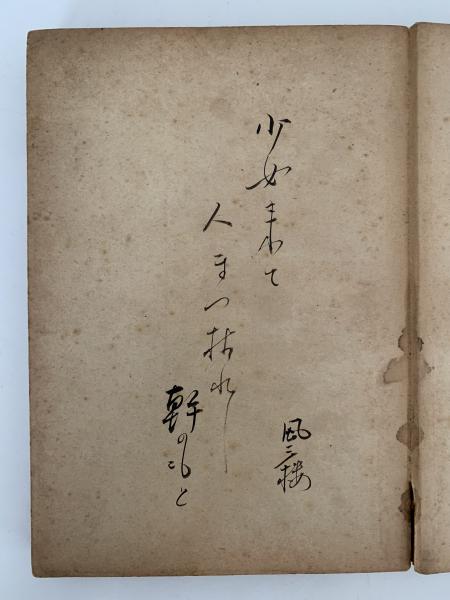 少女来て
人まつ枯れし
幹のもと
風三楼